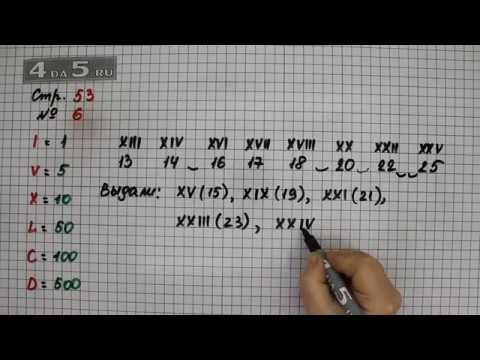 4 DA 5 .RU
Стр. 53
№ 6
I = 1
V = 5
X = 10
L = 50
C = 100
D = 500
XIII XIV XVI XVII XVIII XX XXII XXV
13 14 _ 16 17 18 _ 20 _ 22 _ _ 25
Выдали: XV (15), XIX (19), XXI (21),
XXIII (23), XXIV
5